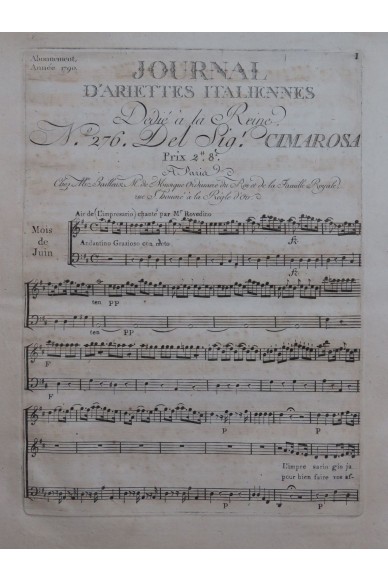 Abonnement.
Année 1790
1
JOURNAL
D'ARIETTES ITALIENNES
Dédié à la Reine.
N.º 276. Del Sig.r CIMAROSA
Prix 2# 8s
A Paris
Chez Mr Bailleux, Md de Musique Ordinaire du Roi et de la Famille Royale,
rue S. Honoré à la Règle d'Or.
Air de l'impresario chanté par Mr Rovedino
Mois
de
Juin
Andantino Grazioso con moto
ten PP
ten
F
F
F P
L'impre sario gia ja
pour bien faire vos af-
P F P